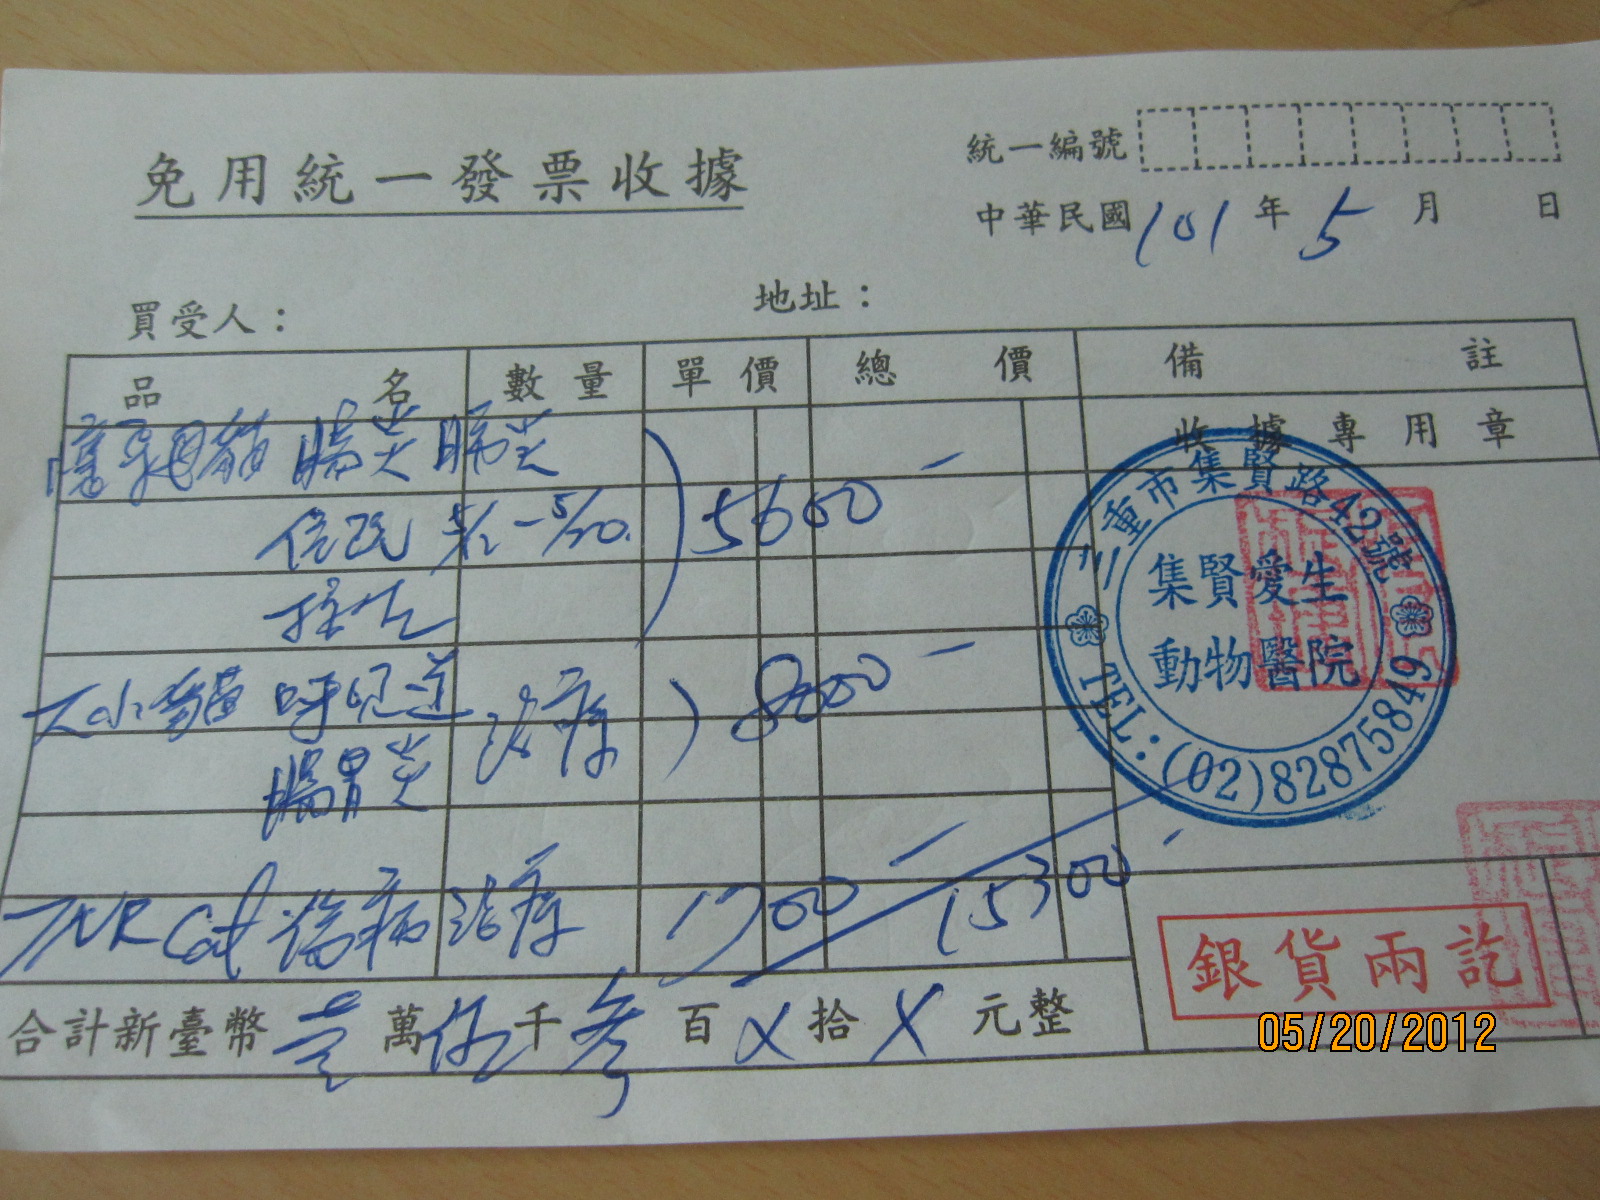 免用統一發票收據
統一編號
中華民國101年5月 日
買受人：
地址：
品名 數量 單價 總價 備註
收據專用章
貓 腸炎 肺炎
5600 —
三重市集賢路42號
集賢愛生
動物醫院
TEL:(02)82875849
大小貓 呼吸道 治療 8000 —
腸胃炎
TNR Cat 傷病 治療 1700 —
15300 —
銀貨兩訖
合計新臺幣壹萬伍千參百X拾X元整
05/20/2012